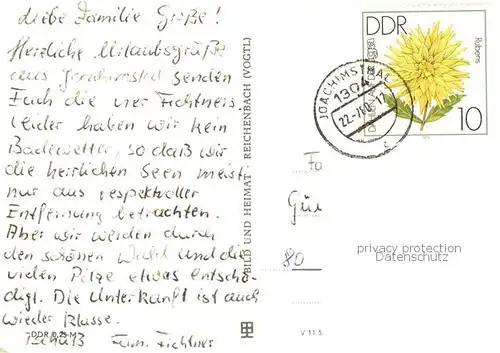 Liebe Familie Große!
Herzliche Urlaubsgrüße
aus Joachimstal senden
Euch die vier Fichtners
Leider haben wir kein
Badewetter, so daß wir
die herrlichen Seen meist
nur aus respektvoller
Entfernung betrachten.
Aber wir werden durch
den schönen Wald und die
vielen Pilze etwas entschä-
digt. Die Unterkunft ist auch
wieder Klasse.
DDR 0,25 M
Tschüß Fam. Fichtner
BILD UND HEIMAT · REICHENBACH (VOGTL)
V 11 5
DDR
Rubens
10
JOACHIMSTHAL
1304
c
Fa
Gü
80
privacy protection
Datenschutz